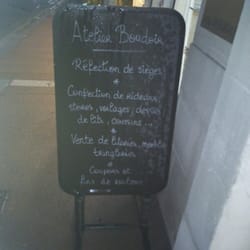 Atelier Boudoir
Réfection de sièges
Confection de rideaux,
stores, voilages, dessus
de lits, coussins...
Vente de literies, meubles
tringleries
Coupons et
fins de rouleaux